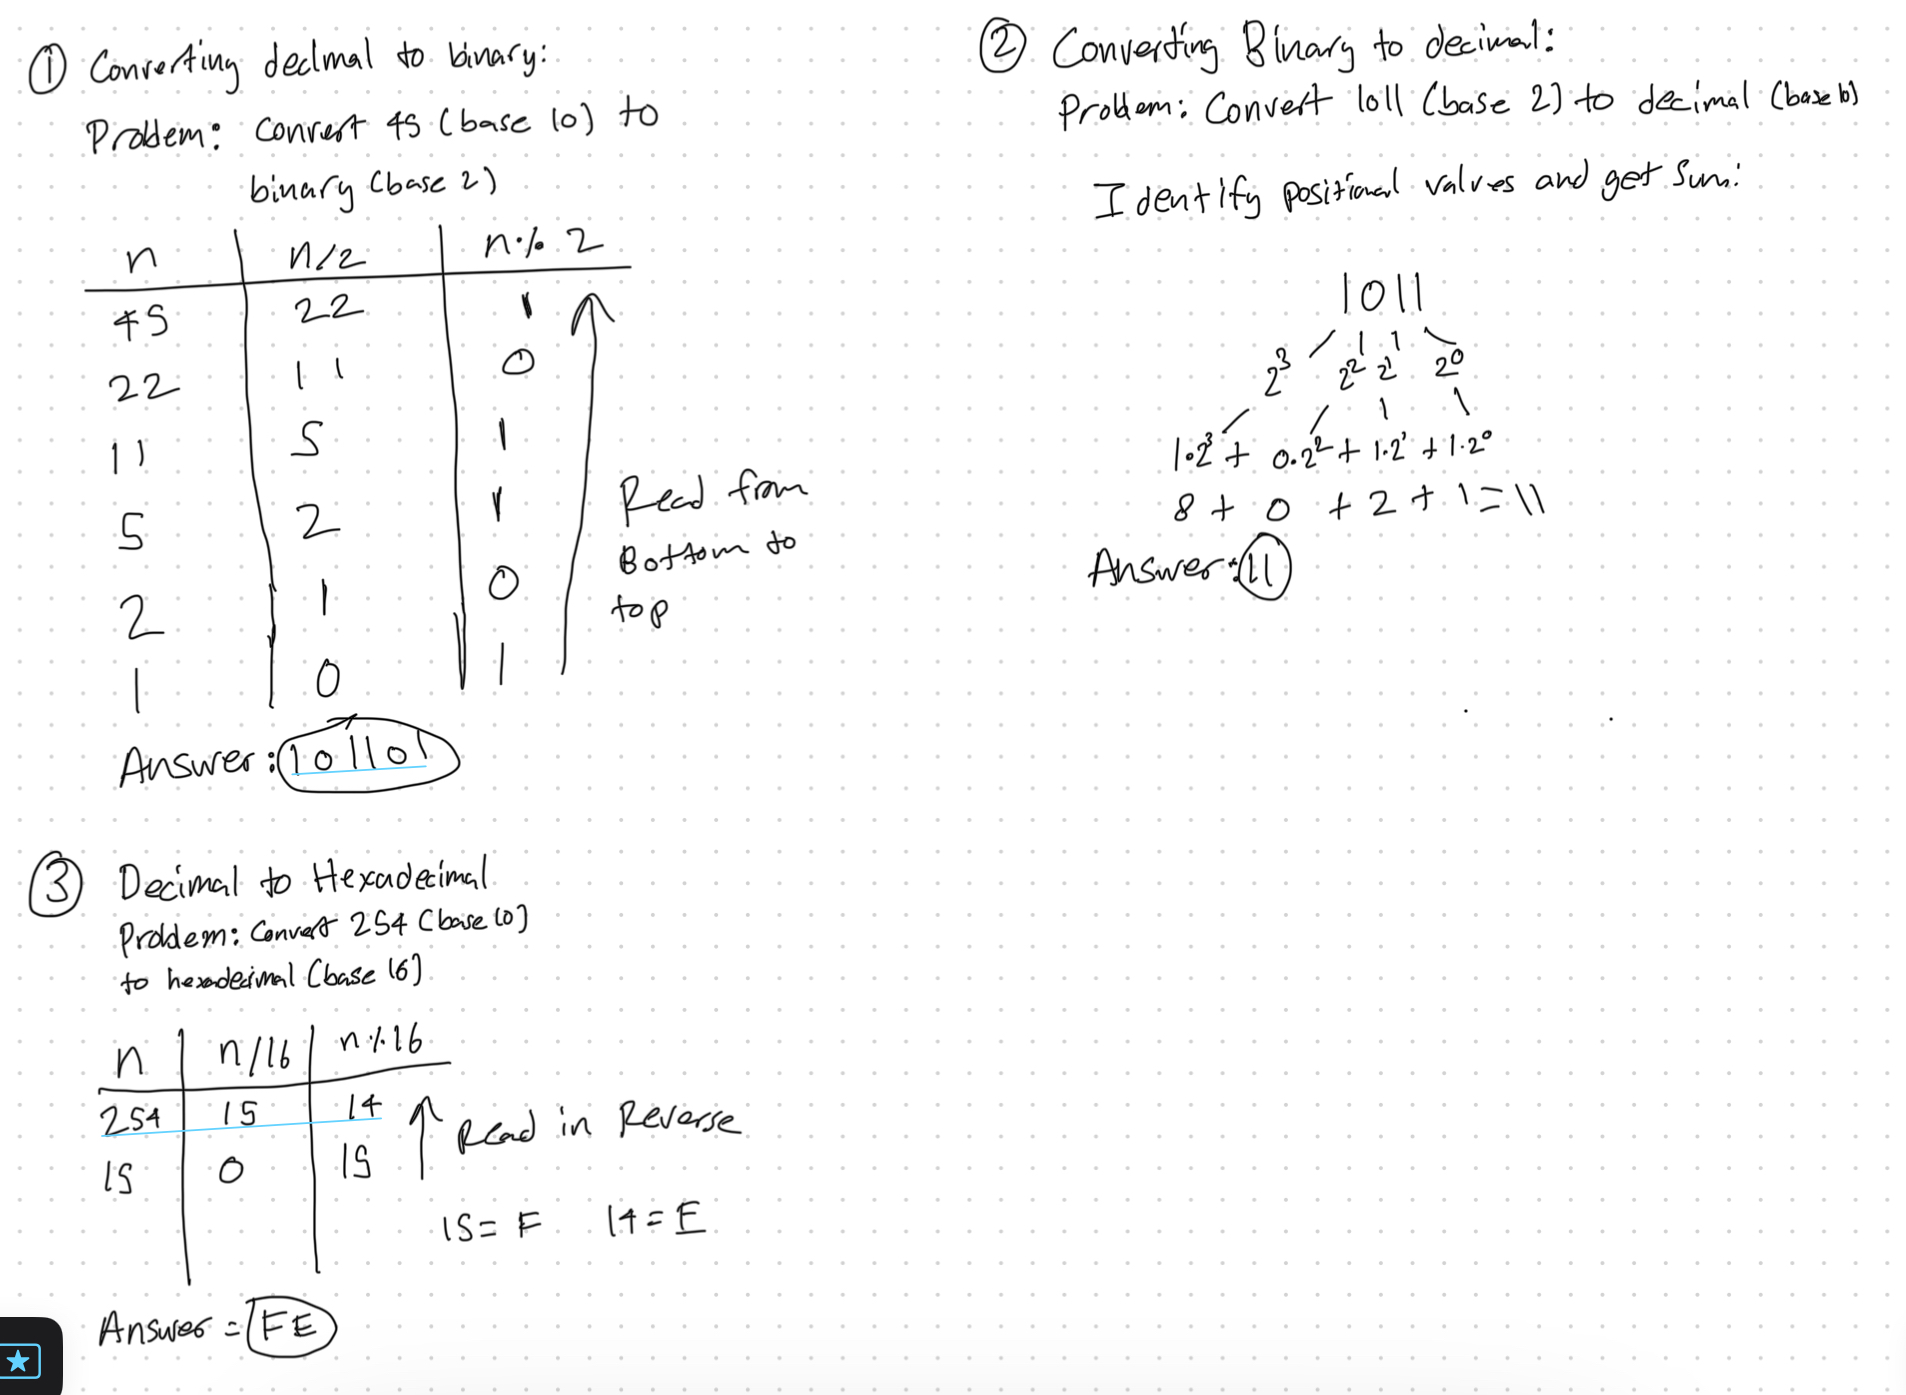 ① Converting decimal to binary:
Problem: Convert 45 (base 10) to
binary (base 2)
n n/2 n % 2
45 22 1
22 11 0
11 5 1
5 2 1
2 1 0
1 0 1
Read from
Bottom to
top
Answer: 101101
② Converting Binary to decimal:
Problem: Convert 1011 (base 2) to decimal (base 10)
Identify positional values and get Sum:
1011
2³ 2² 2¹ 2⁰
1·2³ + 0·2² + 1·2¹ + 1·2⁰
8 + 0 + 2 + 1 = 11
Answer: 11
③ Decimal to Hexadecimal
Problem: Convert 254 (base 10)
to hexadecimal (base 16)
n n/16 n % 16
254 15 14
15 0 15
Read in Reverse
15 = F 14 = E
Answer = FE